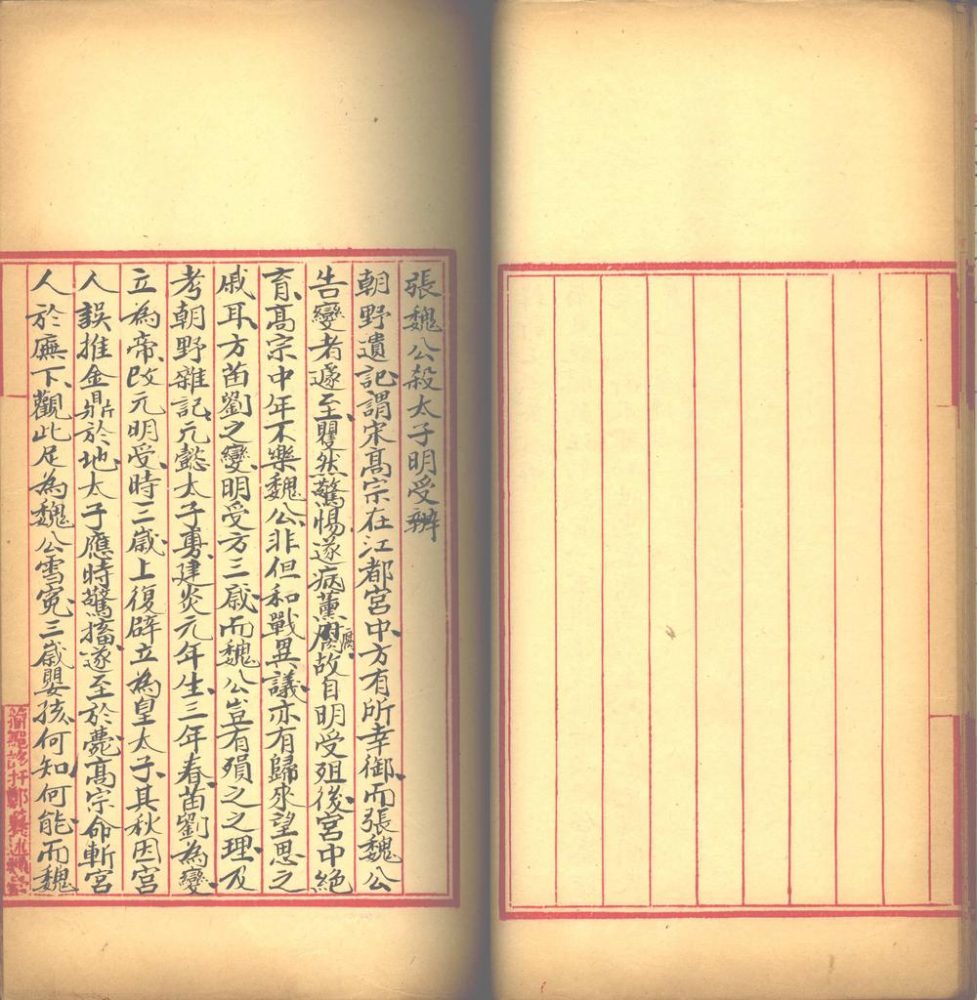 張魏公殺太子明受辨
朝野遺記謂宋高宗在江都宮中方有所幸御而張魏公
告變者遽至矍然驚惕遂病薰腐故自明受殂後宮中絕
育高宗中年不樂魏公非但和戰異議亦有歸來望思之
戚耳方苗劉之變明受方三歲而魏公豈有殞之之理及
考朝野雜記元懿太子旉建炎元年生三年春苗劉為變
立為帝改元明受時三歲上復辟立為皇太子其秋因宮
人誤推金鼎於地太子應時驚搐遂至於薨高宗命斬宮
人於廡下觀此足為魏公雪冤三歲嬰孩何知何能而魏